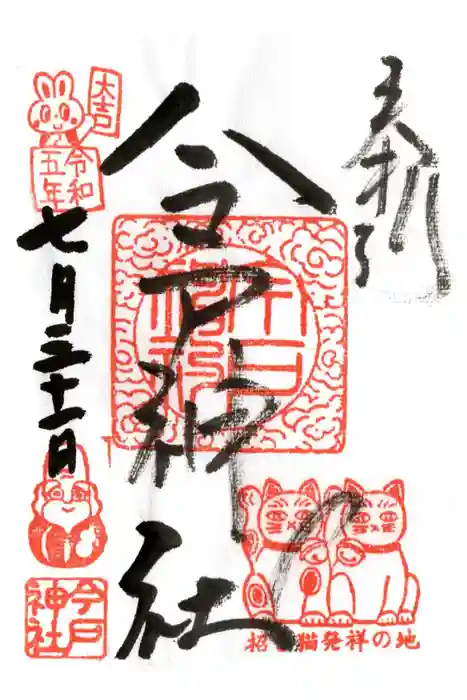 奉拝
今戸神社
大吉
令和
五年
七月三十一日
今戸
神社
招き猫発祥の地